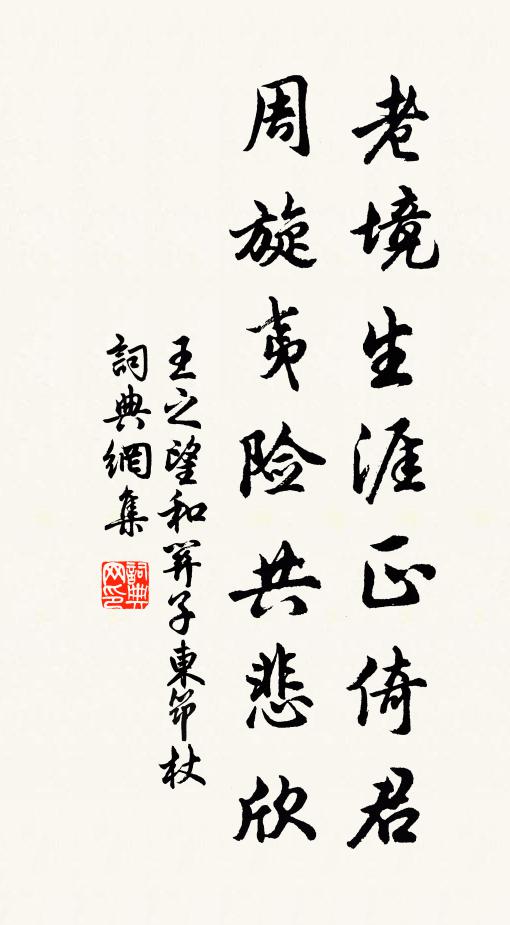 老境生涯正倚君
周旋夷险共悲欣
王之望和羿子東笻杖
詞典網集
詞典网印